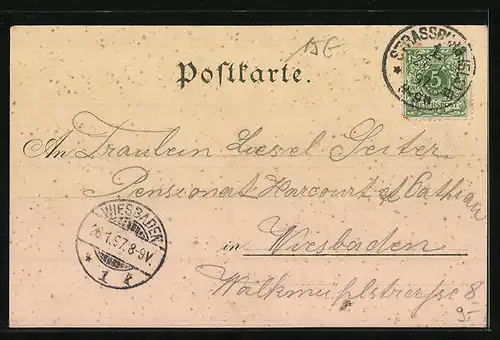 15 E
STRASSBURG
Postkarte.
5
An Fraulein Liesel Seiter
Pensionat Harcourt et Cathiau
WIESBADEN
26.1.97. 8-9V.
* 1 k
in Wiesbaden
Walkmühlstrasse 8
9-